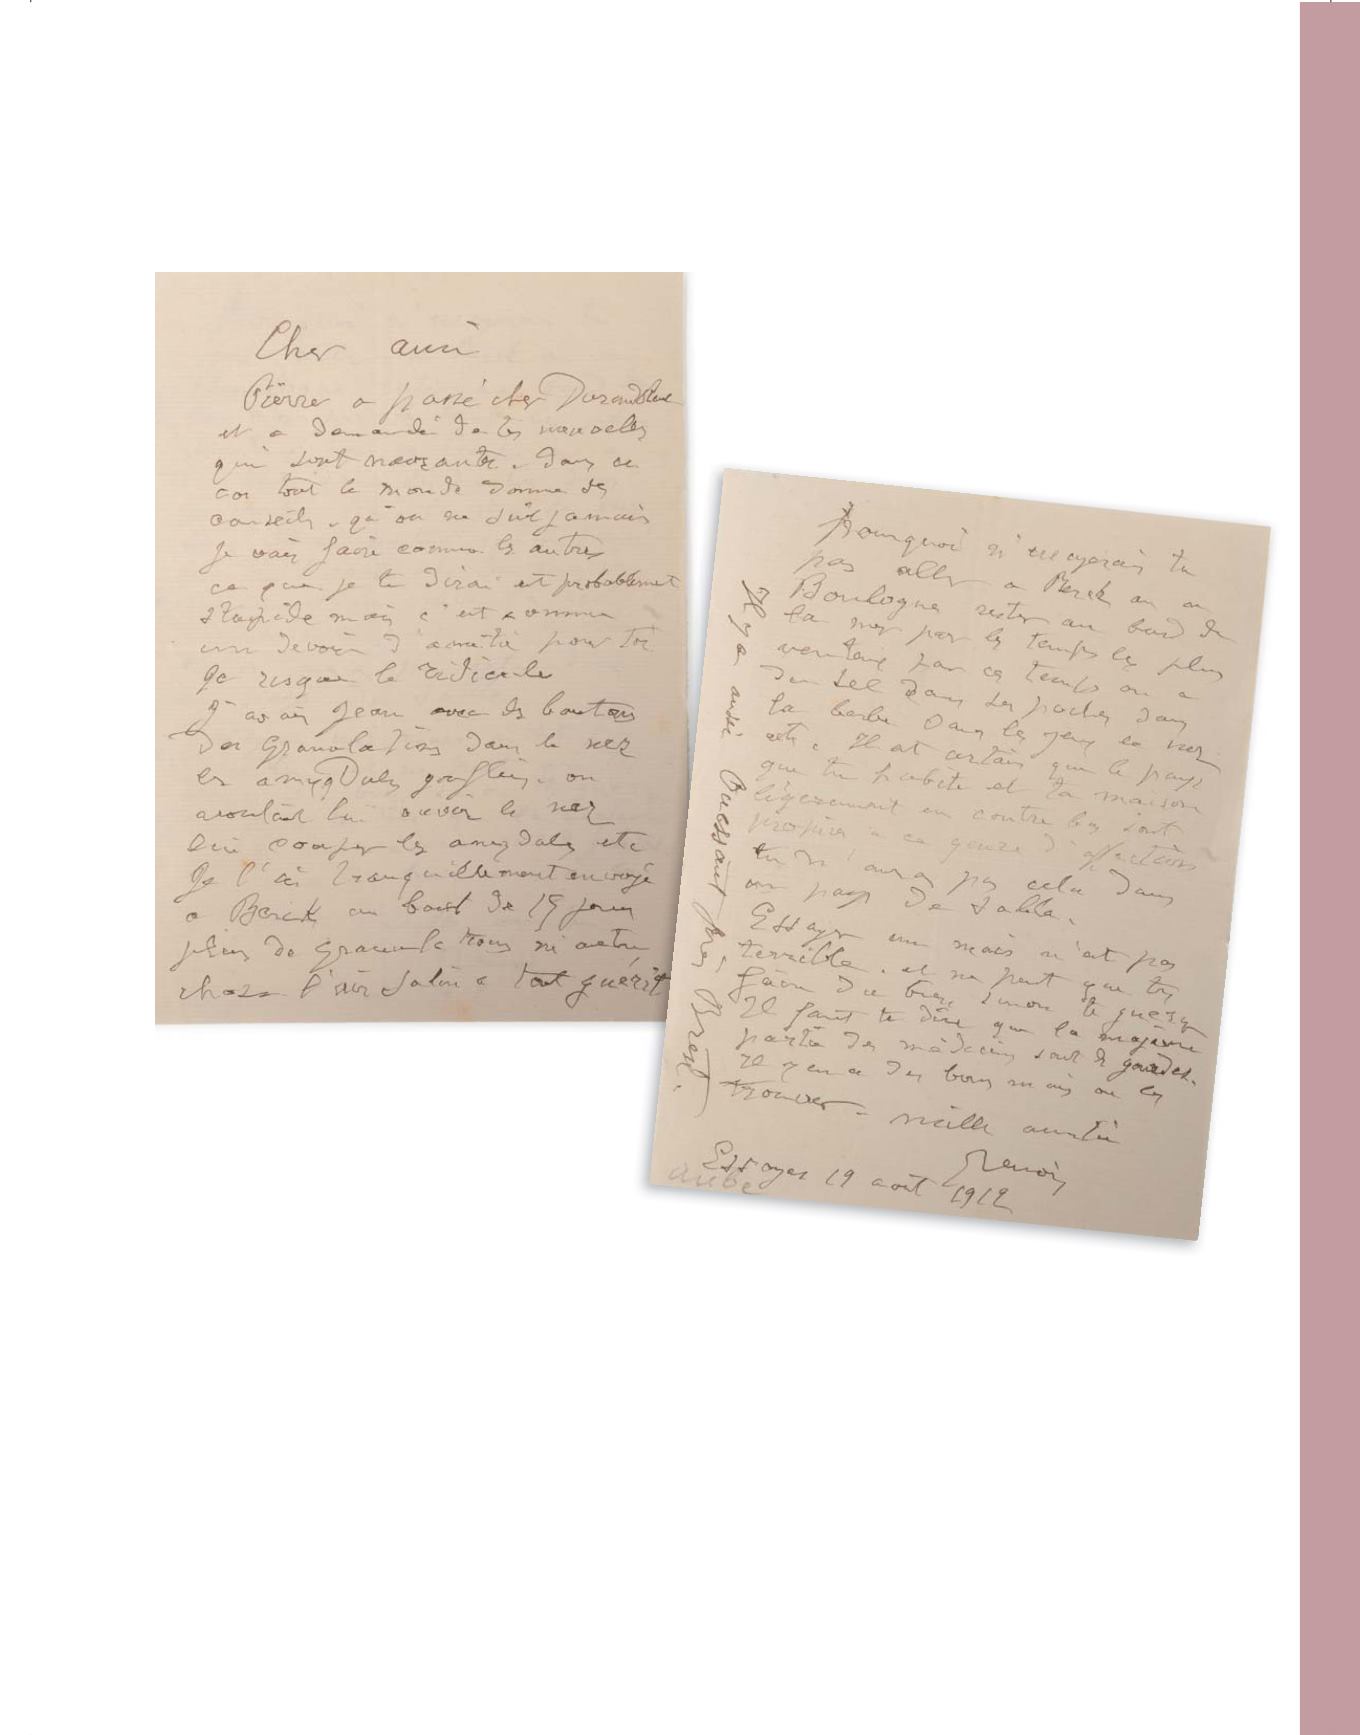 Cher ami
Pierre a passé chez Durand
et a demandé de tes nouvelles
qui sont navrante. Dans ce
cas tout le monde donne des
conseils. qu'on ne suit jamais
Je vais faire comme les autres
ce que je te dirai est probablement
stupide mais c'est comme
un devoir d'amitié pour toi
Ça risque le ridicule
J'avais Jean avec des boutons
des granulations dans le nez
les amygdales gonflées. on
voulait lui ouvrir le nez
lui couper les amygdales etc
Je l'ai tranquillement envoyé
a Berck au bout de 15 jours
plus de granulations ni autre
chose l'air salin a tout guérit
Pourquoi n'essayerais tu
pas aller a Berck ou a
Boulogne rester au bord de
la mer par les temps les plus
venteux par ce temps on a
du sel dans les poches dans
la barbe dans les yeux le nez
etc. Il est certain que le pays
que tu habite et ta maison
légèrement en contre bas sont
propice a ce genre d'affections
tu n'auras pas cela dans
un pays de sable.
Essayer un mois n'est pas
terrible. et ne peut que te
faire du bien, sinon te guérir
Il faut te dire que la majeure
partie des médecins sont des
Il y en a des bons mais ou les
trouver = vieille amitié
Renoir
Essoyes 19 août 1912
aube
Il y a aussi Ouessant près Brest.